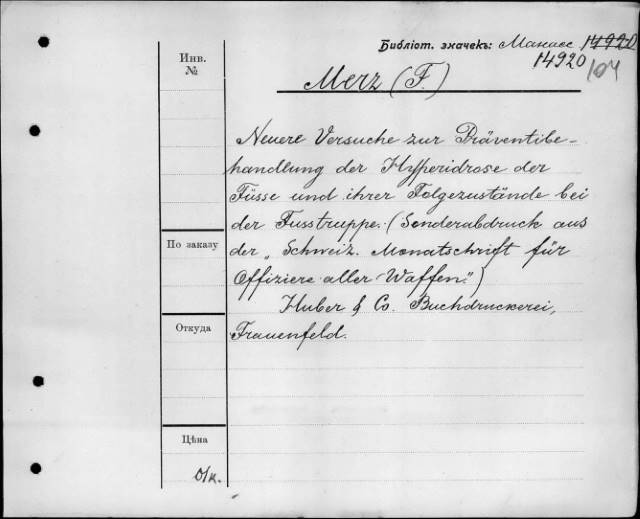 Библіот. значекъ: Манасс 14920
14920 104
Инв.
№
Merz (F.)
Neuere Versuche zur Präventibe-
handlung der Hyperidrose der
Füsse und ihrer Folgezustände bei
der Fusstruppe. (Sonderabdruck aus
der „Schweiz. Monatschrift für
Offiziere aller Waffen.")
Huber & Co. Buchdruckerei,
Frauenfeld.
По заказу
Откуда
Цѣна